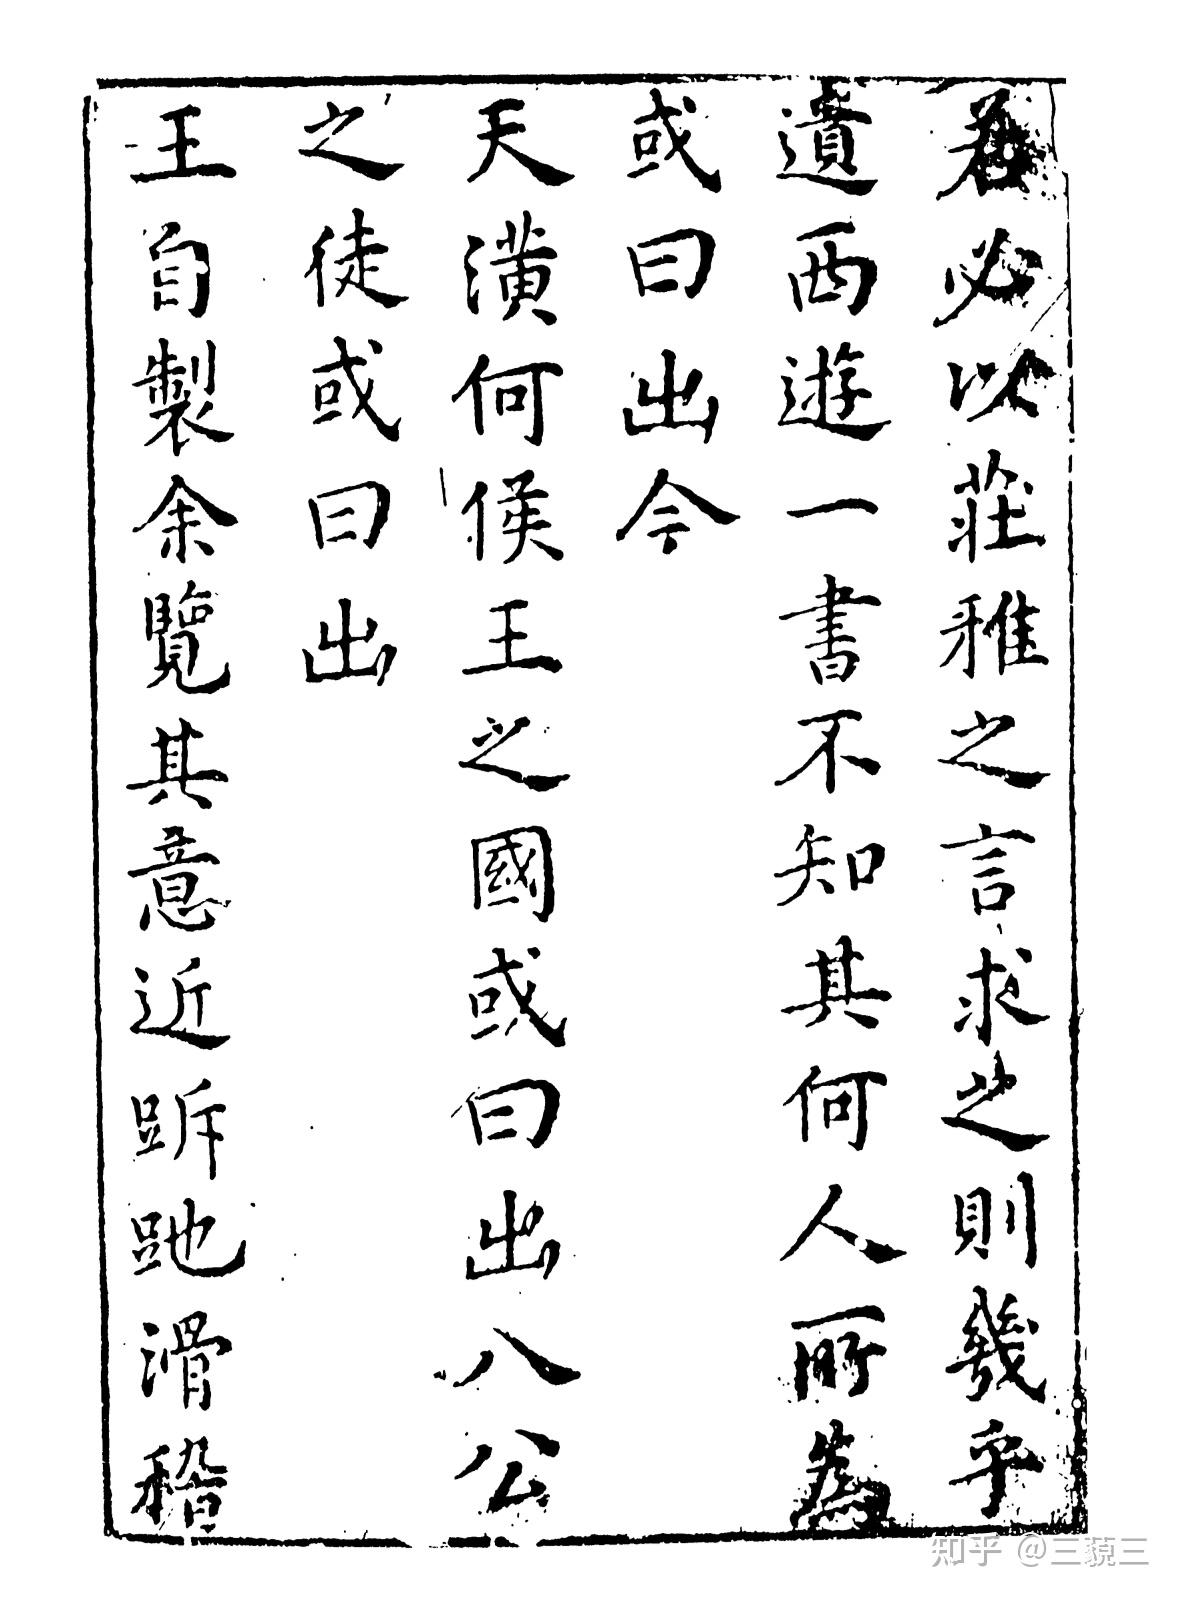 若必以莊雅之言求之則幾乎
遺西遊一書不知其何人所為
或曰出今
天潢何侯王之國或曰出八公
之徒或曰出
王自製余覽其意近跅𧿶滑稽
知乎 @三藐三